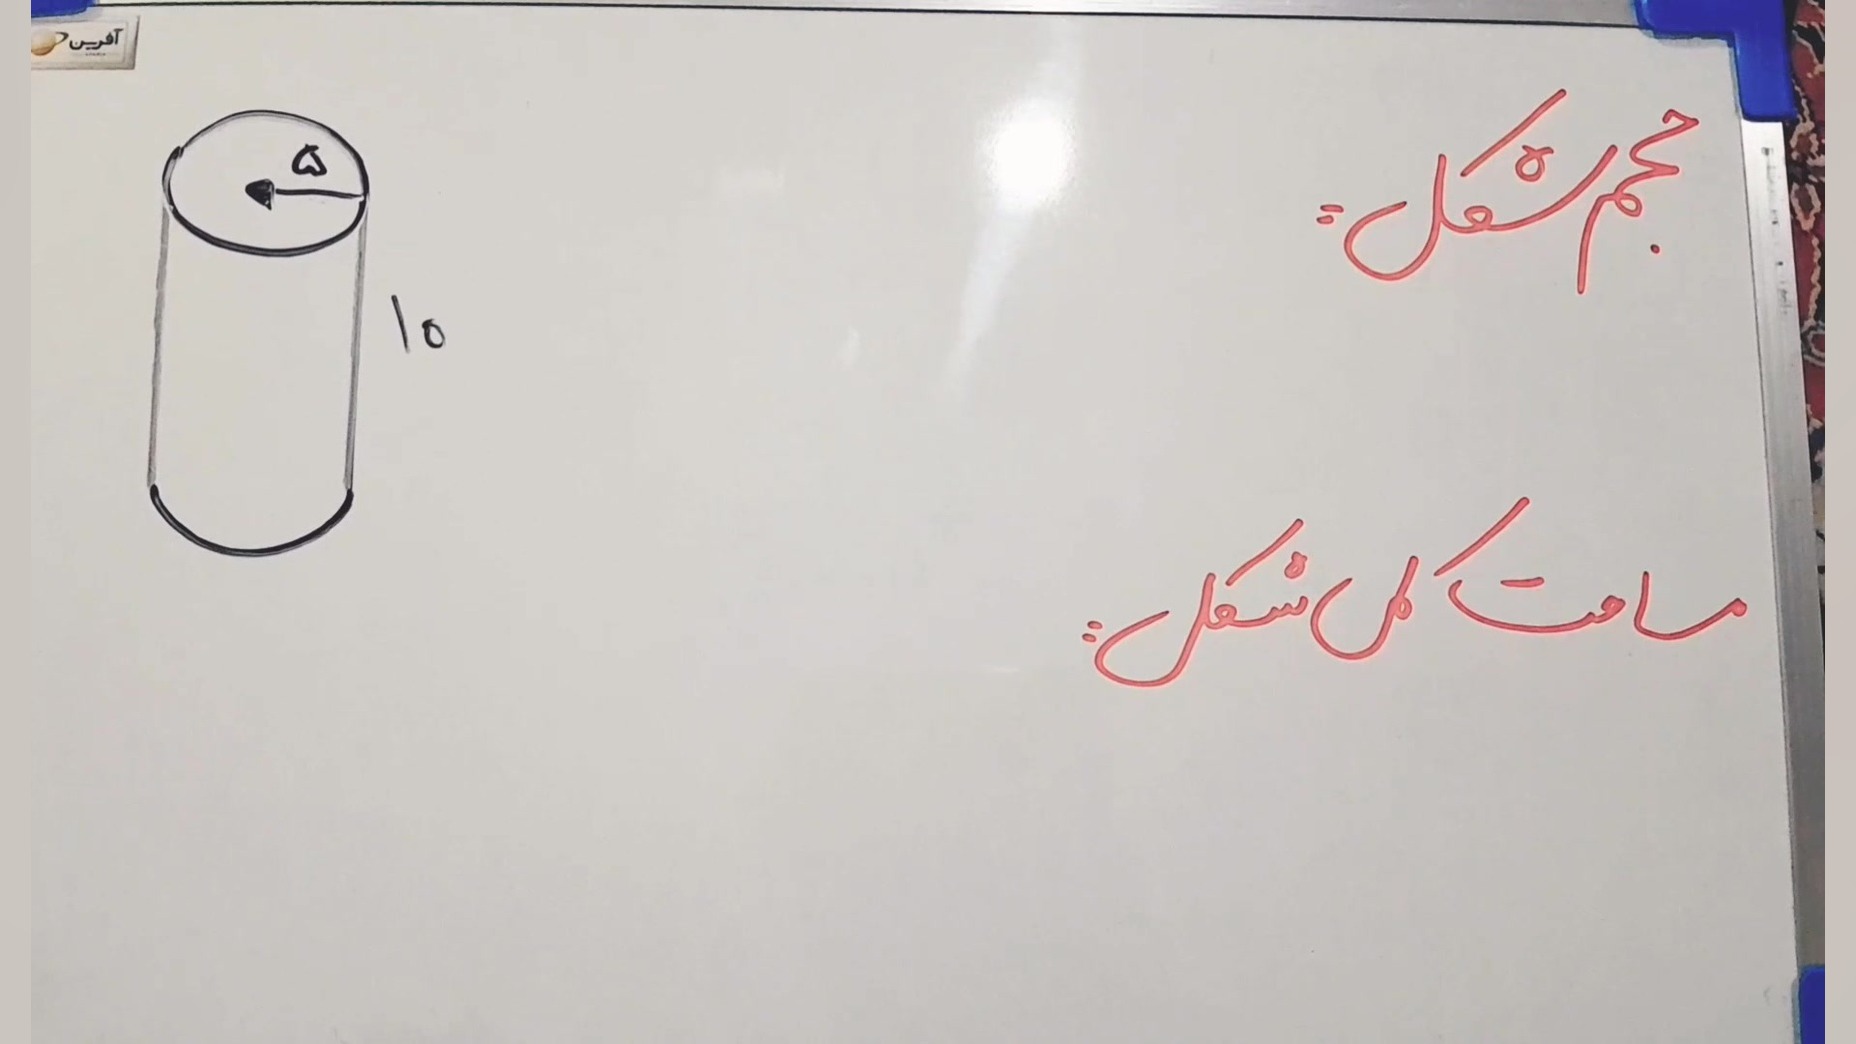 آفرین
حجم شکل:
۵
۱۰
مساحت کل شکل: